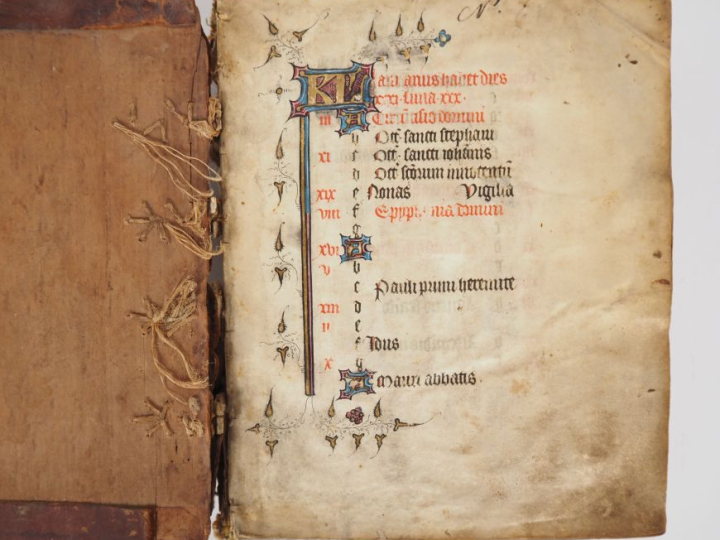 KL
Januarius habet dies
xxxi luna xxx.
iii A Circūcisio domini
b Oct̄ sancti stephani
xi c Oct̄ sancti iohānis
d Oct̄ sc̄orum innocentū
xix e Nonas Vigilia
viii f Epyphania domini
g
xvi A
v b
c Pauli primi heremite
xiii d
ii e
f Idus
x g
A Mauri abbatis